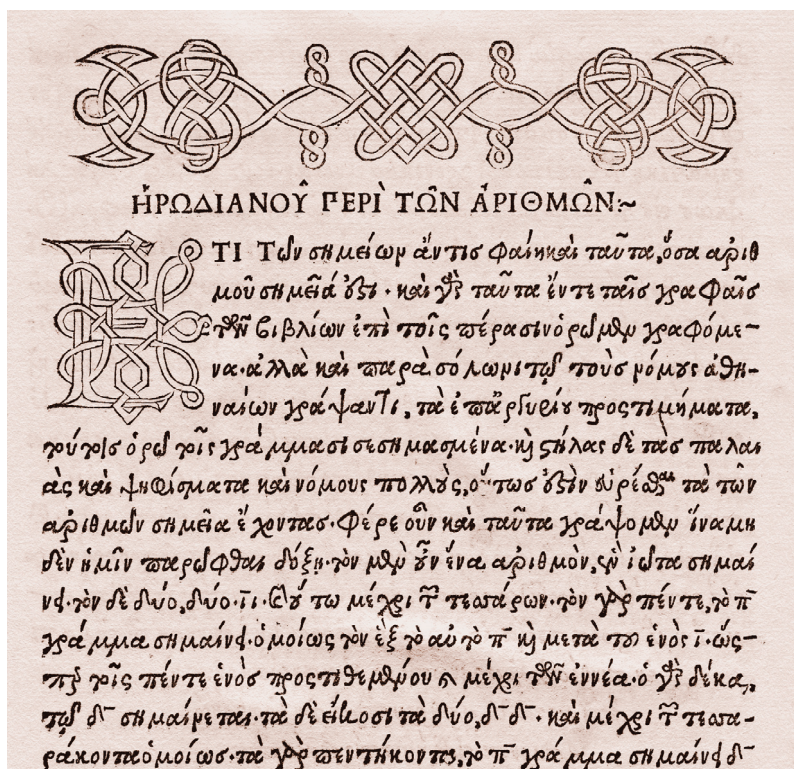 ἩΡΩΔΙΑΝΟΥ͂ ΠΕΡῚ ΤΩ͂Ν ἈΡΙΘΜΩ͂Ν:~
ΕΤΙ Τῶν σημείων ἄντις φαίη καὶ ταῦτα, ὅσα ἀριθ
μοῦ σημεῖά ὄξι · καὶ γὰρ ταῦτα ἔν τε ταῖς γραφαῖς
τῶν βιβλίων ἐπὶ τοῖς πέρασιν ὁρῶμεν γραφόμε-
να· ἀλλὰ καὶ παρὰ σόλωνι τῷ τοὺς νόμους ἀθη-
ναίων γράψαντι, τὰ ἐπ' ἀργυρίου προστιμήματα,
τούτοις ὁρῶ τοῖς γράμμασι σεσημασμένα· καὶ στήλας δὲ τὰς παλαι
ὰς καὶ ψηφίσματα καὶ νόμους πολλοὺς, οὕτως ἐστὶν εὑρέσθαι τὰ τῶν
ἀριθμῶν σημεῖα ἔχοντας· Φέρε οὖν καὶ ταῦτα γράψομεν ἵνα μη
δὲν ἡμῖν παρῶφθαι δόξῃ· τὸν μὲν οὖν ἕνα ἀριθμὸν, ἓν ἰῶτα σημαί
νει· τὸν δὲ δύο, δύο· ῑι· οὕτω μέχρι τῶν τεσσάρων· τὸν γὰρ πέντε, τὸ π̄
γράμμα σημαίνει· ὁμοίως τὸν ἓξ τὸ αὐτὸ π̄ καὶ μετὰ τοῦ ἑνὸς ῑ· ὥς-
περ τοῖς πέντε ἑνὸς προστιθεμένου μέχρι τῶν ἐννέα· ὁ γὰρ δέκα,
τῷ δ̄ σημαίνεται· τὰ δὲ εἴκοσι τὰ δύο, δ̄ δ̄· καὶ μέχρι τῶν τεσσα-
ράκοντα ὁμοίως· τὰ γὰρ πεντήκοντα, τὸ π̄ γράμμα σημαίνει δ̄